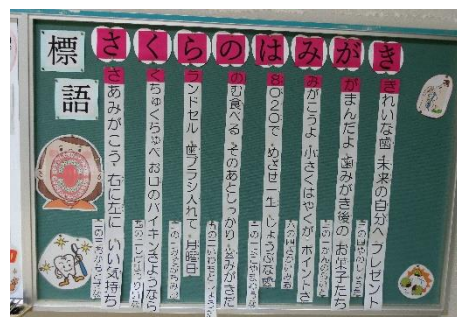 標語
さくらのはみがき
さあみがこう 右に左に いい気持ち
くちゅくちゅぺ お口のバイキンさようなら
ランドセル 歯ブラシ入れて 月曜日
のむ食べる そのあとしっかり 歯みがきだ
8020で めざせ一生 じょうぶな歯
みがこうよ 小さくはやくが ポイントさ
がまんだよ 歯みがき後の お菓子たち
きれいな歯 未来の自分へ プレゼント